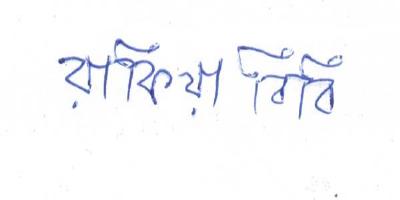 রাকিয়া বিবি